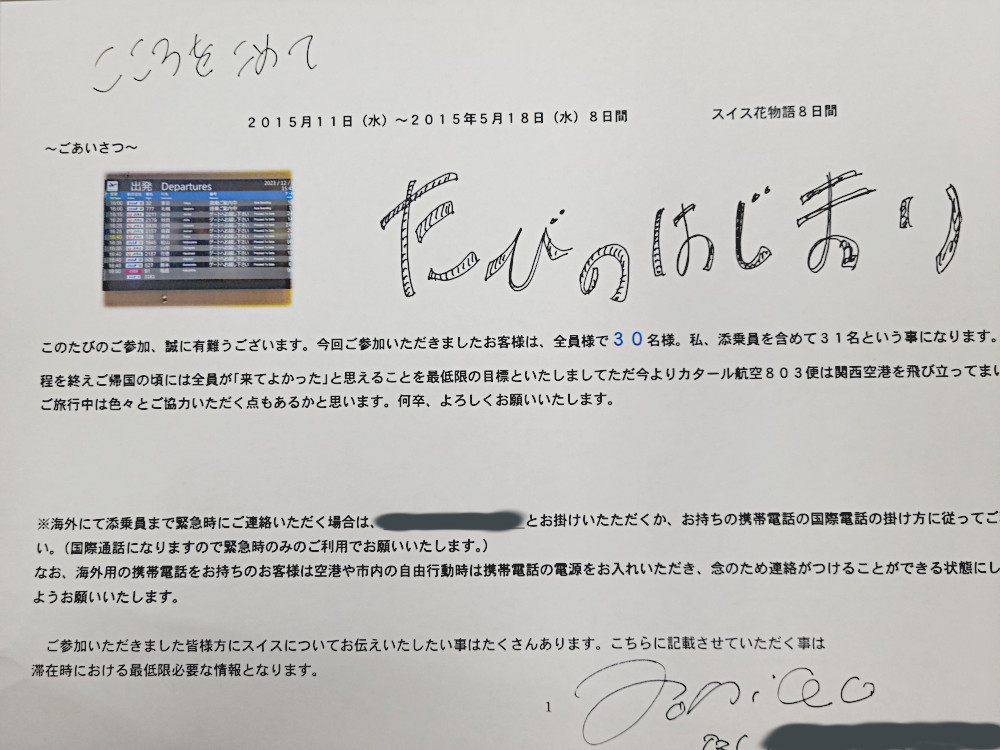 こころをこめて
2015月11日（水）～2015年5月18日（水）8日間
スイス花物語8日間
～ごあいさつ～
出発 Departures
たびのはじまり
このたびのご参加、誠に有難うございます。今回ご参加いただきましたお客様は、全員様で30名様。私、添乗員を含めて31名という事になります。
程を終えご帰国の頃には全員が「来てよかった」と思えることを最低限の目標といたしましてただ今よりカタール航空803便は関西空港を飛び立ってまい
ご旅行中は色々とご協力いただく点もあるかと思います。何卒、よろしくお願いいたします。
※海外にて添乗員まで緊急時にご連絡いただく場合は、
とお掛けいたただくか、お持ちの携帯電話の国際電話の掛け方に従ってご
い。（国際通話になりますので緊急時のみのご利用でお願いいたします。）
なお、海外用の携帯電話をお持ちのお客様は空港や市内の自由行動時は携帯電話の電源をお入れいただき、念のため連絡がつけることができる状態にし
ようお願いいたします。
ご参加いただきました皆様方にスイスについてお伝えいたしたい事はたくさんあります。こちらに記載させていただく事は
滞在時における最低限必要な情報となります。
1